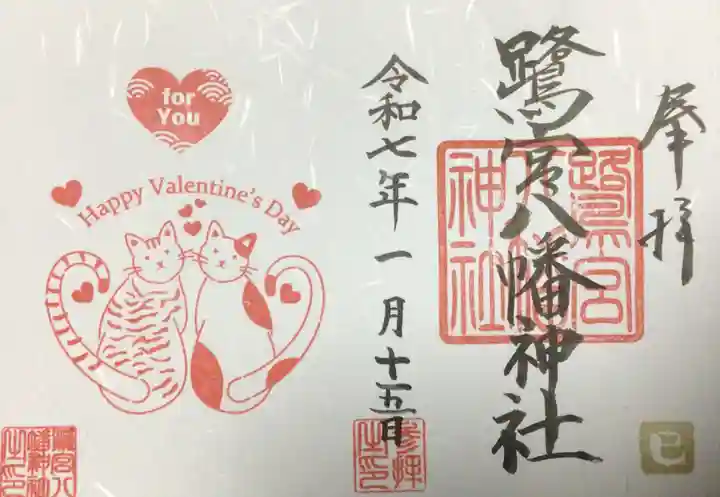 奉拝
鷺宮八幡神社
鷺宮八幡神社
令和七年一月十五日
参拝之印
巳
for
You
Happy Valentine's Day
鷺宮八幡神社之印